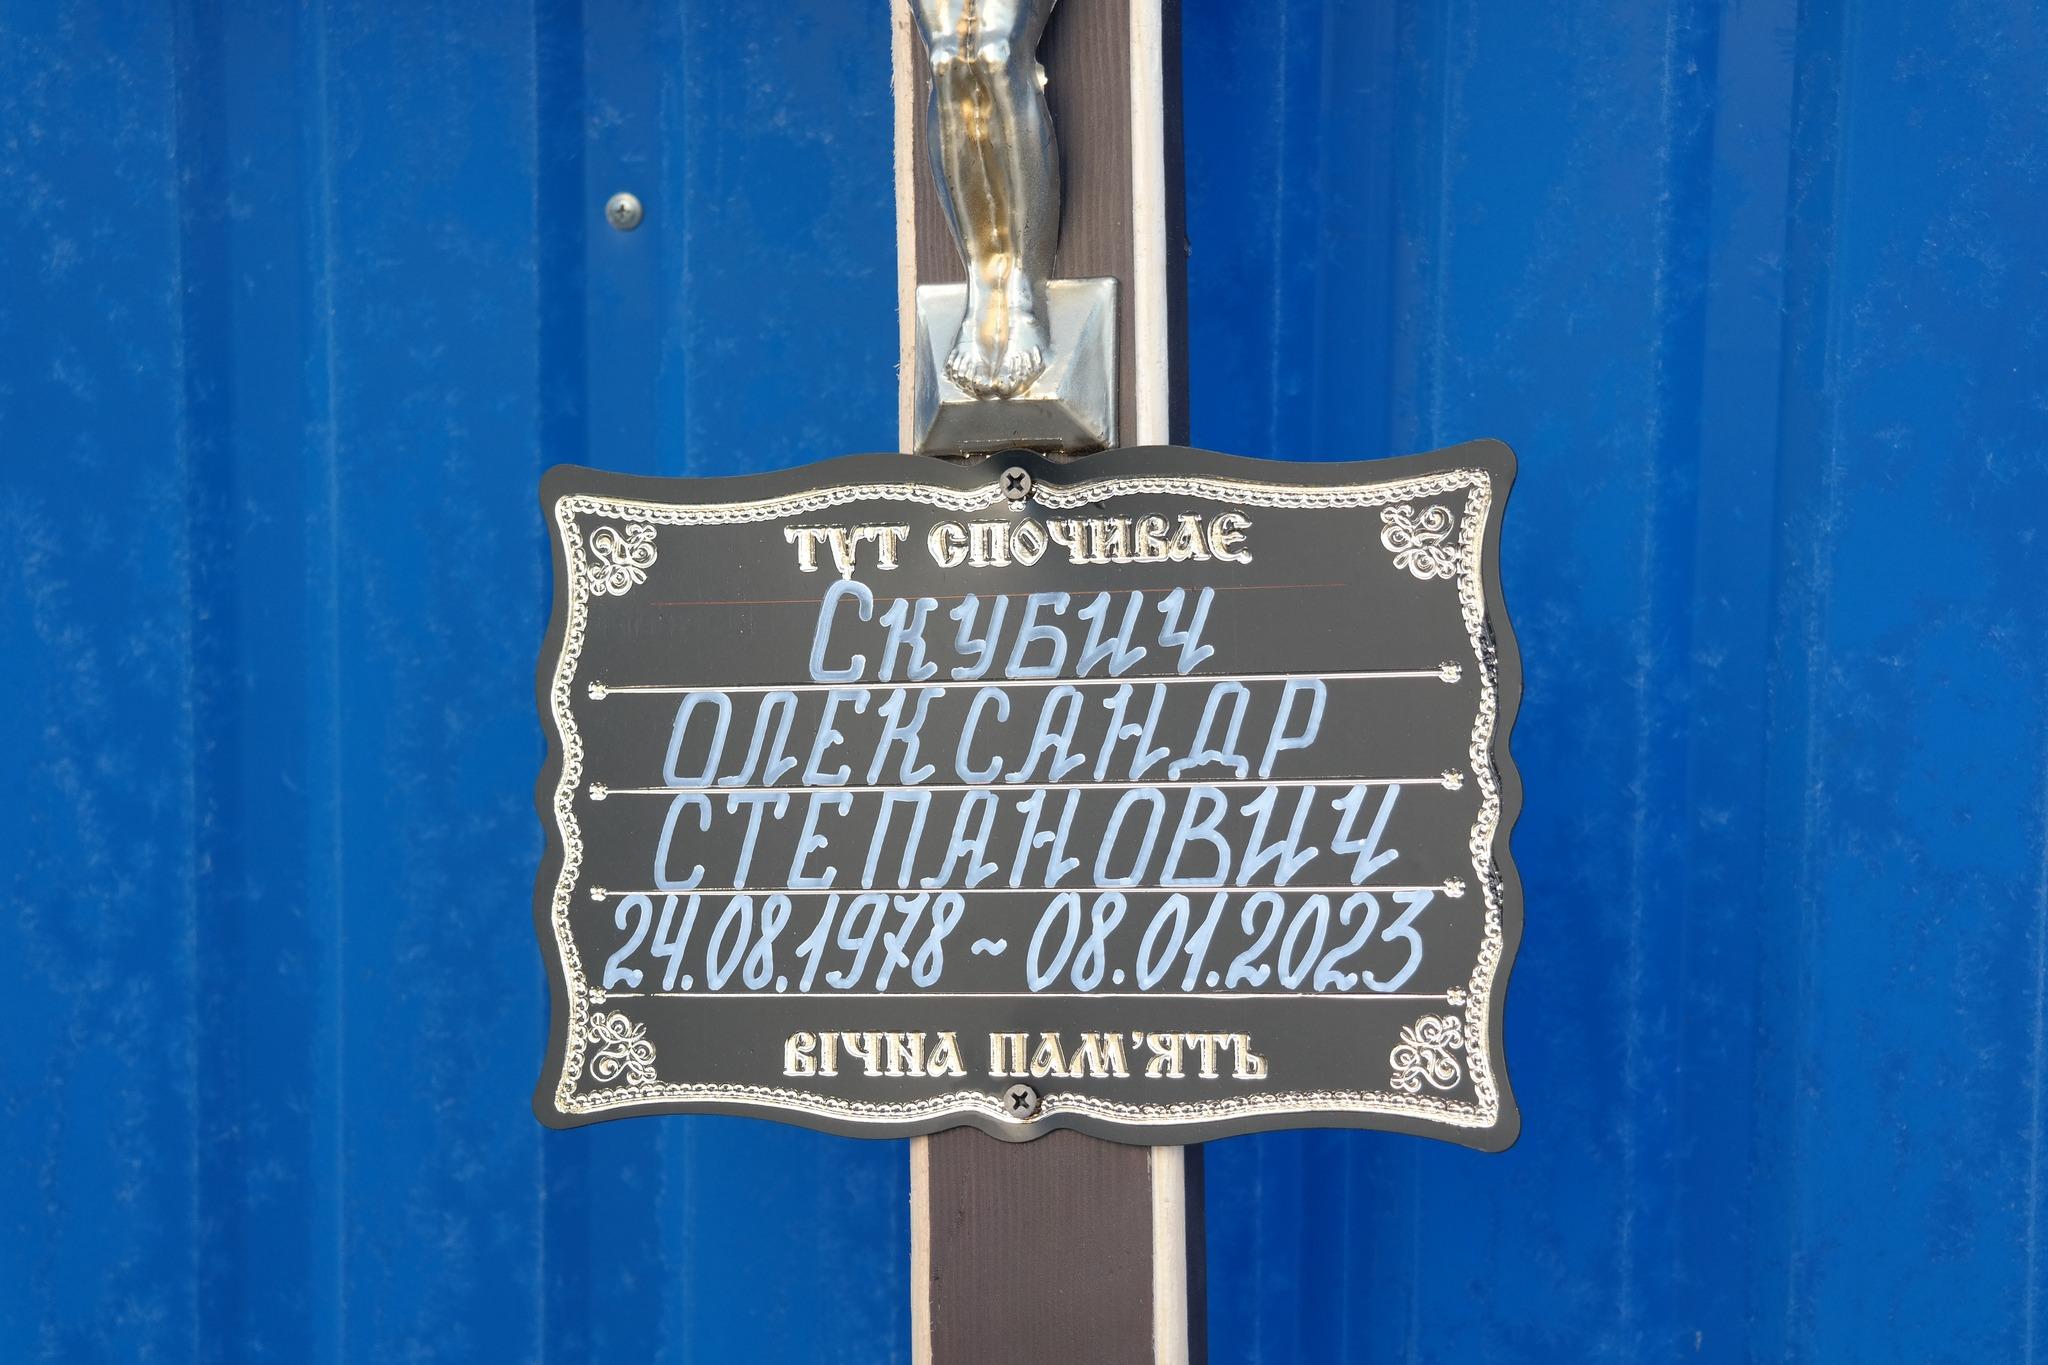 ТУТ СПОЧИВАЄ
Скубич
ОЛЕКСАНДР
СТЕПАНОВИЧ
24.08.1978 ~ 08.01.2023
ВІЧНА ПАМ'ЯТЬ